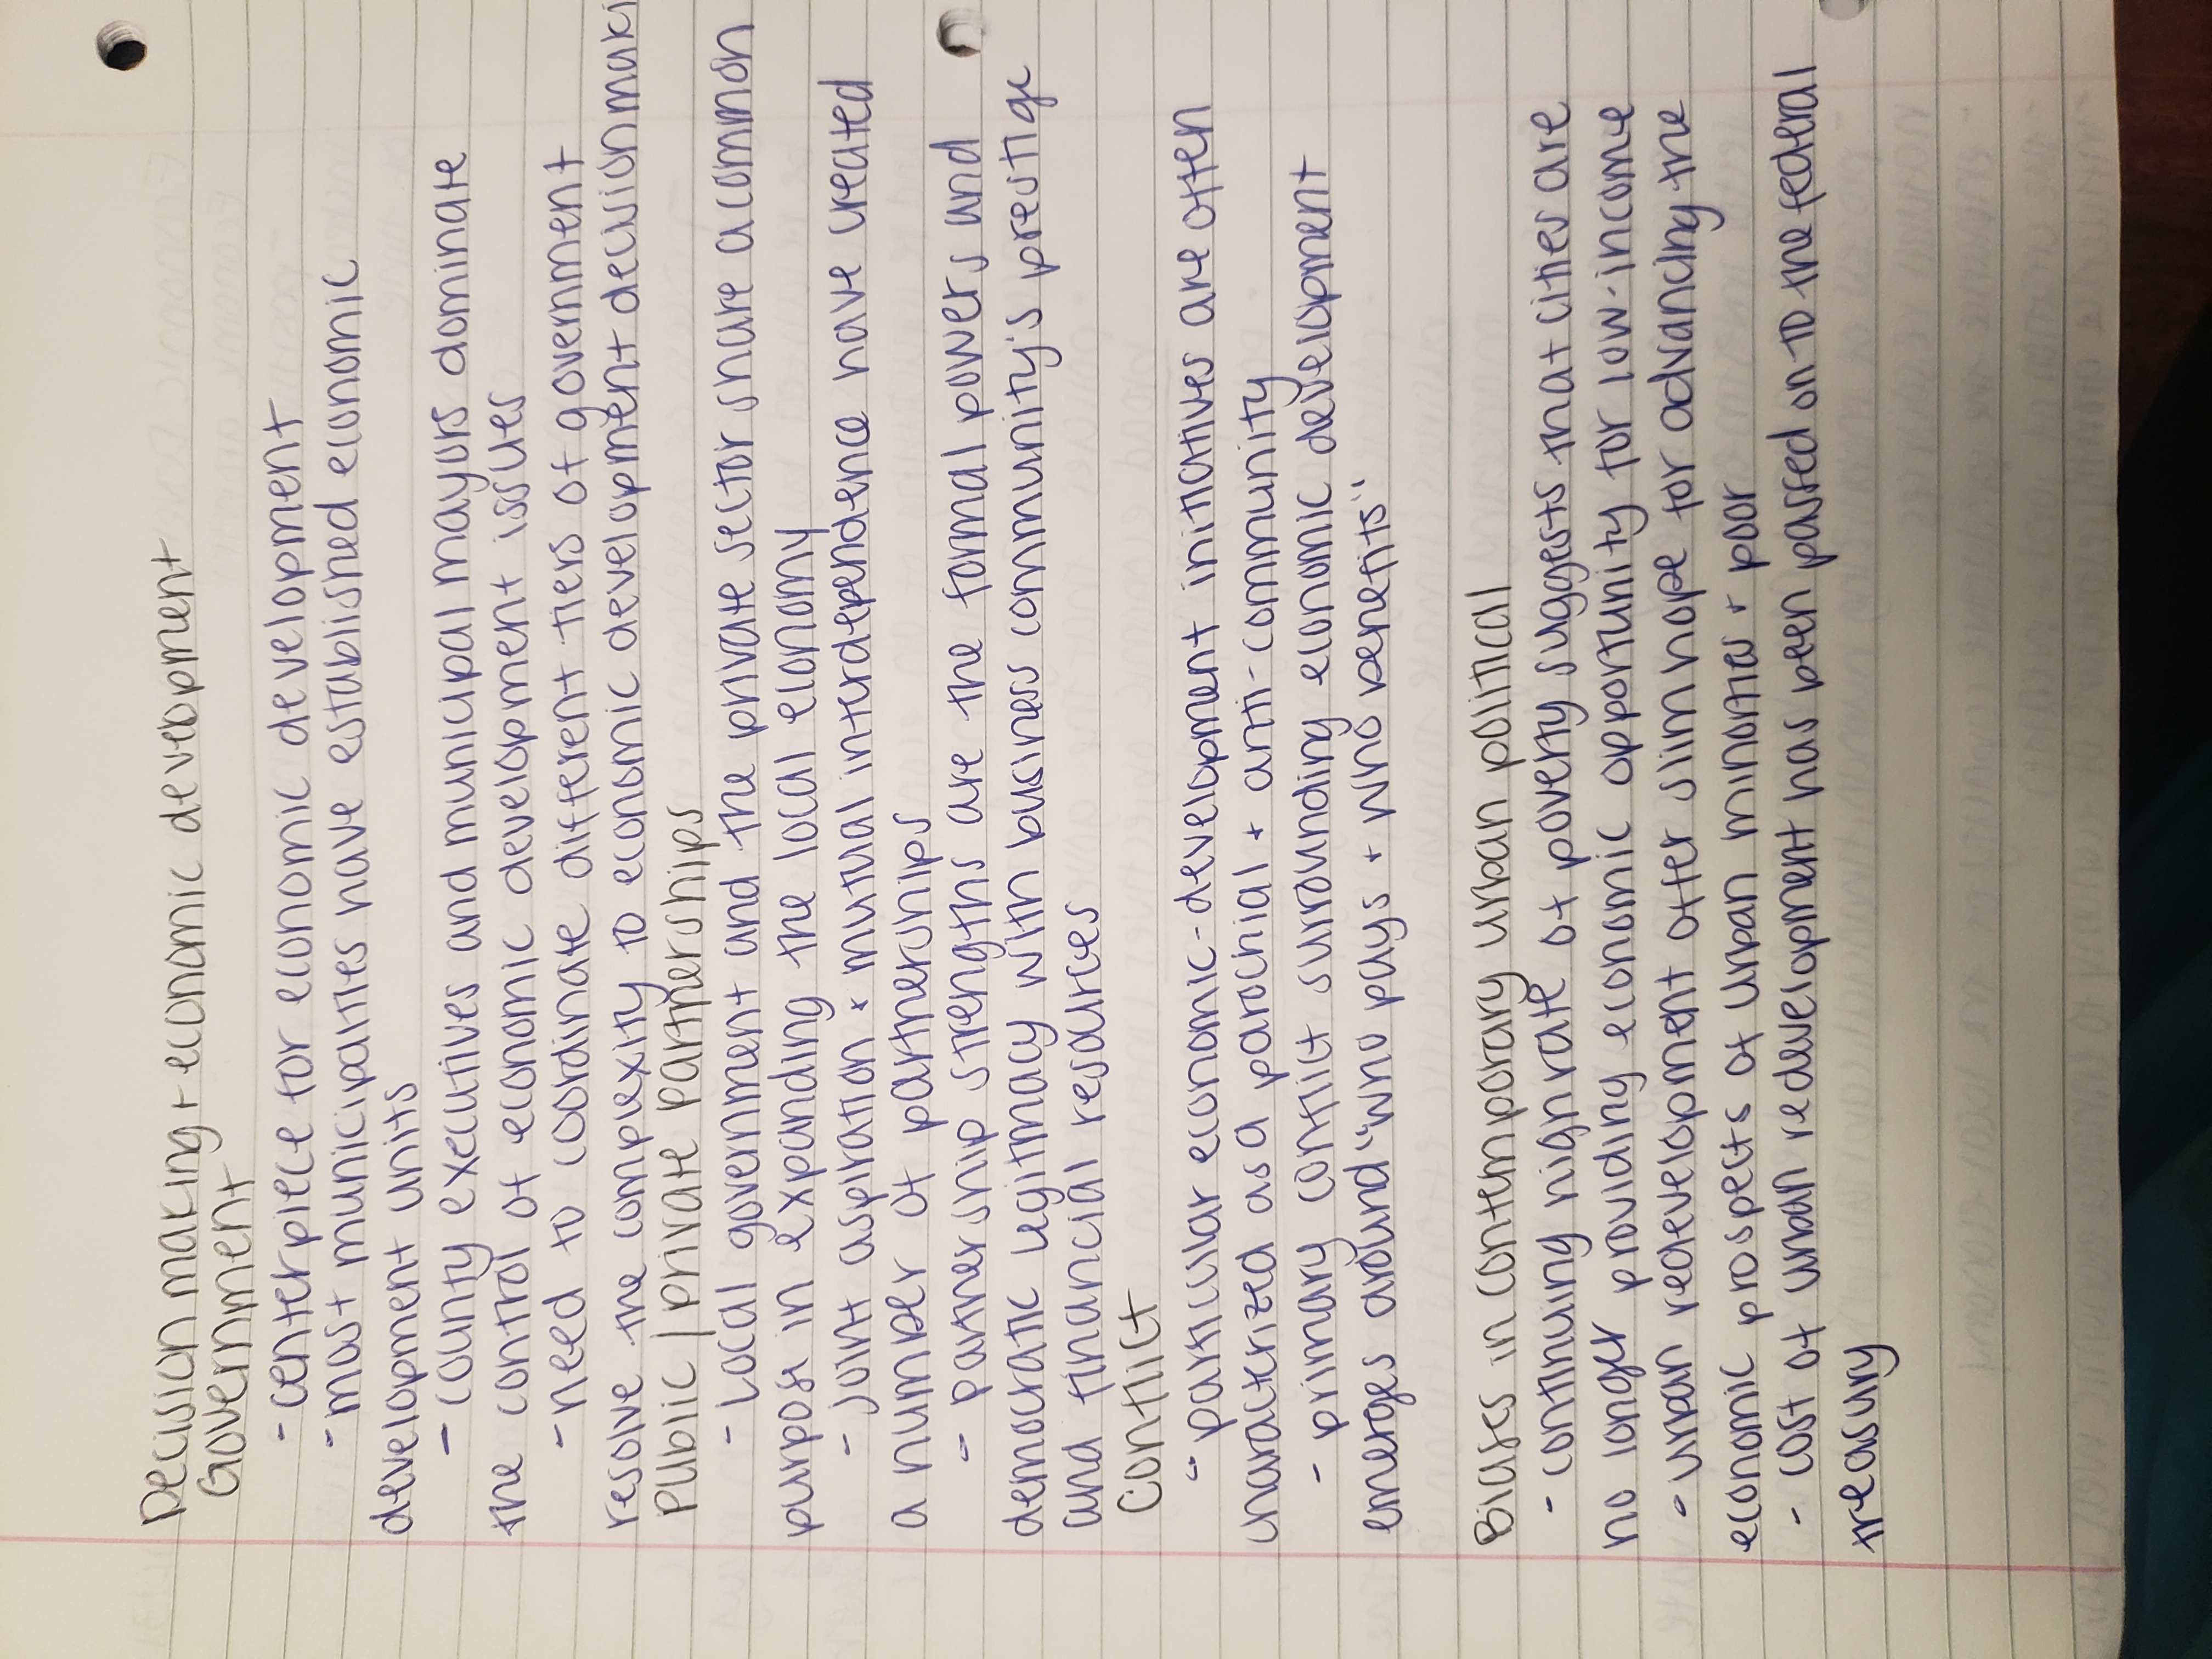 Decision making + economic development
Government
- centerpiece for economic development
- most municipalities have established economic
development units
- county executives and municipal mayors dominate
the control of economic development issues
- need to coordinate different tiers of government
resolve the complexity to economic development decision maki
Public / private partnerships
- Local government and the private sector share a common
purpose in expanding the local economy
- Joint aspiration + mutual interdependence have created
a number of partnerships
- partnership strengths are the formal powers and
democratic legitmacy with business community's prestige
and financial resources
Conflict
- particular economic-development initiatives are often
characterized as a parochial + anti-community
- primary conflict surrounding economic development
emerges around "who pays + who benefits"
Biases in contemporary urban political
- continuing high rate of poverty suggests that cities are
no longer providing economic opportunity for low-income
- urban redevelopment offer slim hope for advancing the
economic prospects of urban minorities + poor
- cost of urban redevelopment has been passed on to the federal
treasury